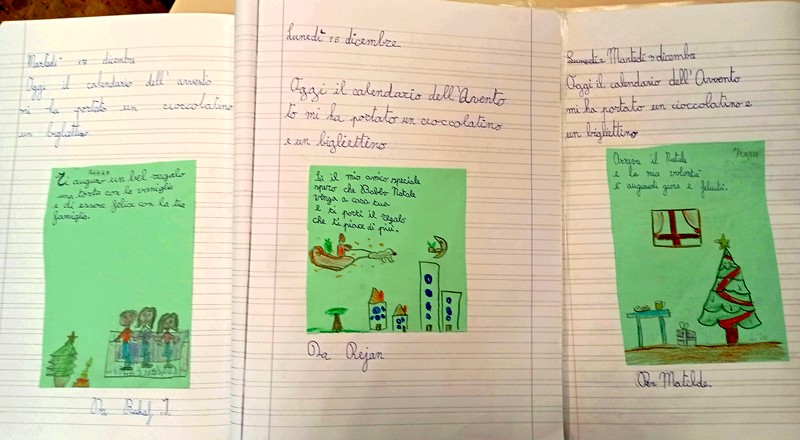 Martedì 15 dicembre
Oggi il calendario dell'avvento
mi ha portato un cioccolatino
un bigliettino
Ti auguro un bel regalo
una torta con la vaniglia
e di essere felice con la tua
famiglia.
Da
Lunedì 15 dicembre
Oggi il calendario dell'Avento
to mi ha portato un cioccolatino
e un bigliettino
Sa il mio amico speciale
spero che Babbo Natale
venga a casa tua
e ti porti il regalo
che ti piace di più.
Da Rejan
Martedì dicembe
Oggi il calendario dell'Avvento
mi ha portato un cioccolatino e
un bigliettino
Arriva il Natale
e la mia volontà
è augurarti gioia e felicità.
Matilde.